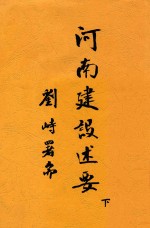 河南建設述要
下
劉峙署